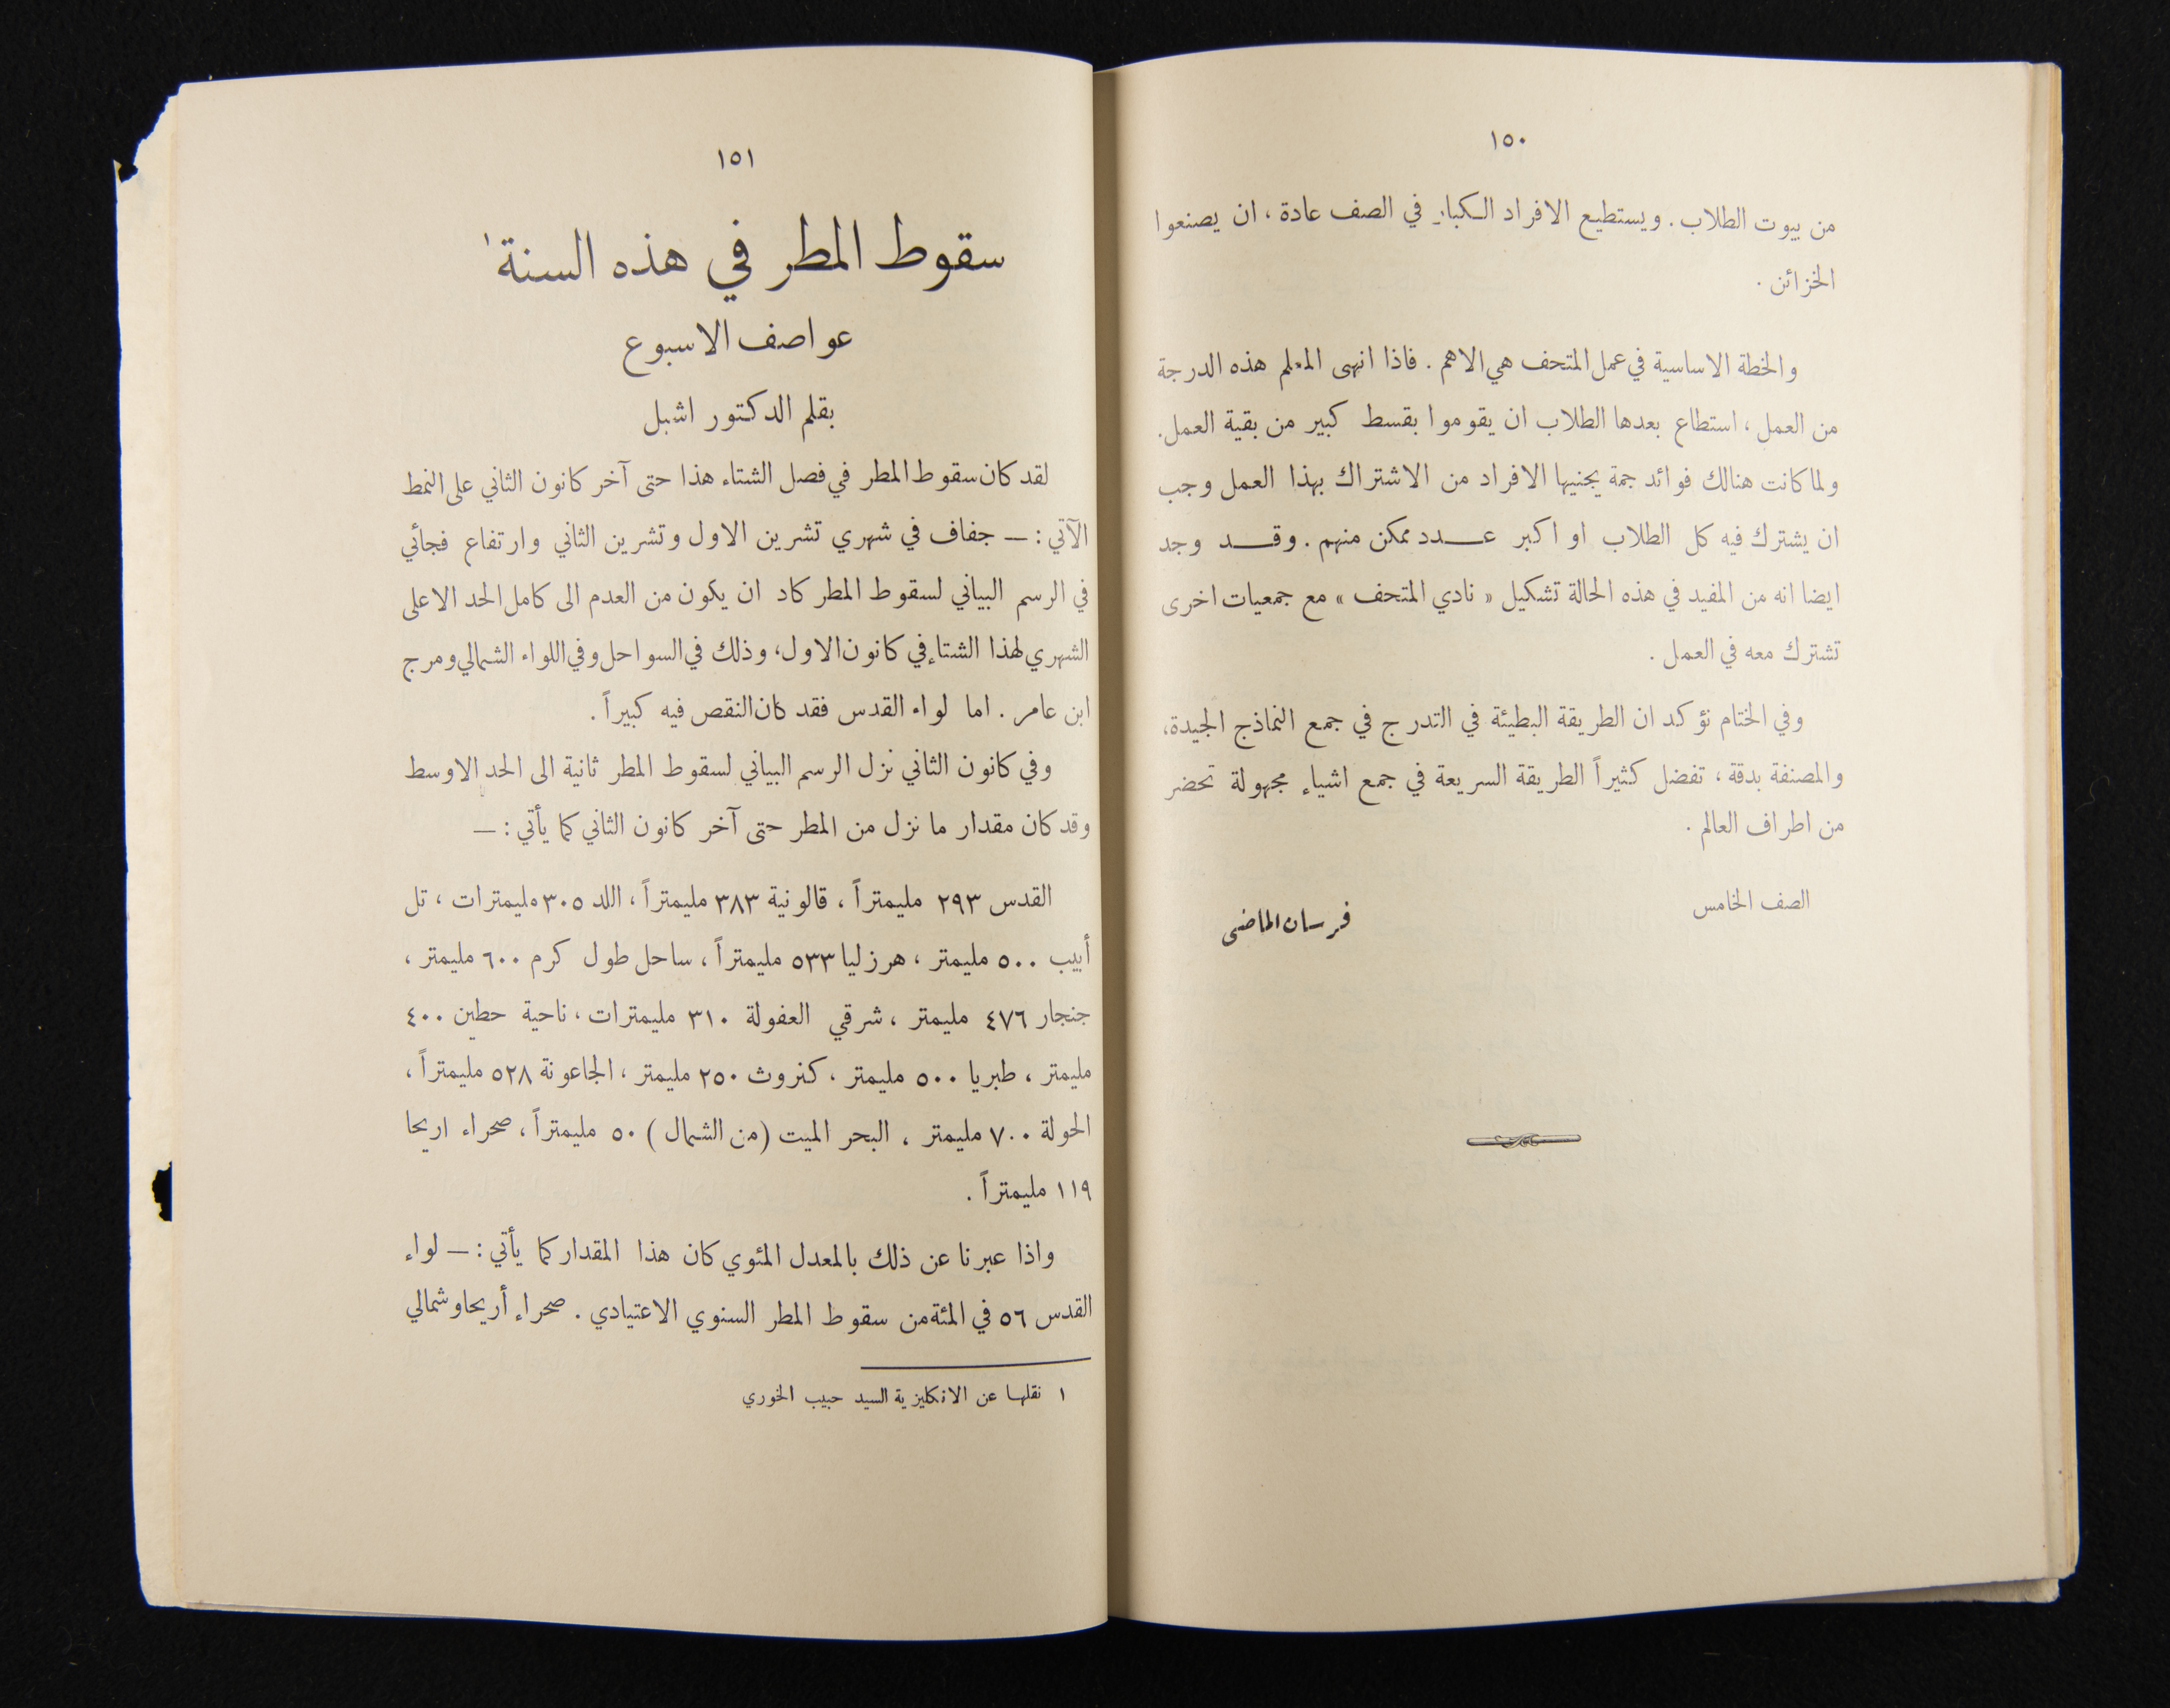 ١٥٠
من بيوت الطلاب . ويستطيع الافراد الكبار في الصف عادة ، ان يصنعوا
الخزائن .
والخطة الاساسية في عمل المتحف هي الاهم . فاذا انهى المعلم هذه الدرجة
من العمل ، استطاع بعدها الطلاب ان يقوموا بقسط كبير من بقية العمل .
ولما كانت هنالك فوائد جمة يجنيها الافراد من الاشتراك بهذا العمل وجب
ان يشترك فيه كل الطلاب او اكبر عدد ممكن منهم . وقد وجد
ايضا انه من المفيد في هذه الحالة تشكيل « نادي المتحف » مع جمعيات اخرى
تشترك معه في العمل .
وفي الختام نؤكد ان الطريقة البطيئة في التدرج في جمع النماذج الجيدة،
والمصنفة بدقة ، تفضل كثيراً الطريقة السريعة في جمع اشياء مجهولة تحضر
من اطراف العالم .
الصف الخامس
فرسان الماضي
١٥١
سقوط المطر في هذه السنة١
عواصف الاسبوع
بقلم الدكتور اشبل
لقد كان سقوط المطر في فصل الشتاء هذا حتى آخر كانون الثاني على النمط
الآتي : — جفاف في شهري تشرين الاول وتشرين الثاني وارتفاع فجائي
في الرسم البياني لسقوط المطر كاد ان يكون من العدم الى كامل الحد الاعلى
الشهري لهذا الشتاء في كانون الاول، وذلك في السواحل وفي اللواء الشمالي ومرج
ابن عامر . اما لواء القدس فقد كان النقص فيه كبيراً .
وفي كانون الثاني نزل الرسم البياني لسقوط المطر ثانية الى الحد الاوسط
وقد كان مقدار ما نزل من المطر حتى آخر كانون الثاني كما يأتي : —
القدس ٢٩٣ مليمتراً ، قالونية ٣٨٣ مليمتراً ، اللد ٣٠٥ مليمترات ، تل
أبيب ٥٠٠ مليمتر ، هرزليا ٥٣٣ مليمتراً ، ساحل طول كرم ٦٠٠ مليمتر ،
جنجار ٤٧٦ مليمتر ، شرقي العفولة ٣١٠ مليمترات ، ناحية حطين ٤٠٠
مليمتر ، طبريا ٥٠٠ مليمتر ، كنروث ٢٥٠ مليمتر ، الجاعونة ٥٢٨ مليمتراً ،
الحولة ٧٠٠ مليمتر ، البحر الميت (من الشمال) ٥٠ مليمتراً ، صحراء اريحا
١١٩ مليمتراً .
واذا عبرنا عن ذلك بالمعدل المئوي كان هذا المقدار كما يأتي : — لواء
القدس ٥٦ في المئة من سقوط المطر السنوي الاعتيادي . صحراء أريحا وشمالي
١ نقلها عن الانكليزية السيد حبيب الخوري